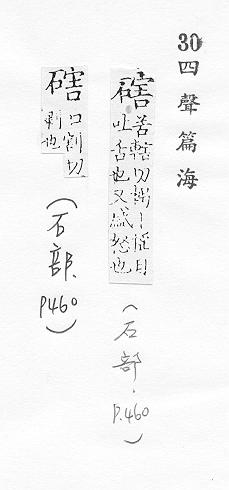 30 四聲篇海
磍
苦轄切搖目
吐舌也又盛怒也
(石部.P.460)
磍
口割切
剥也
(石部.P460)